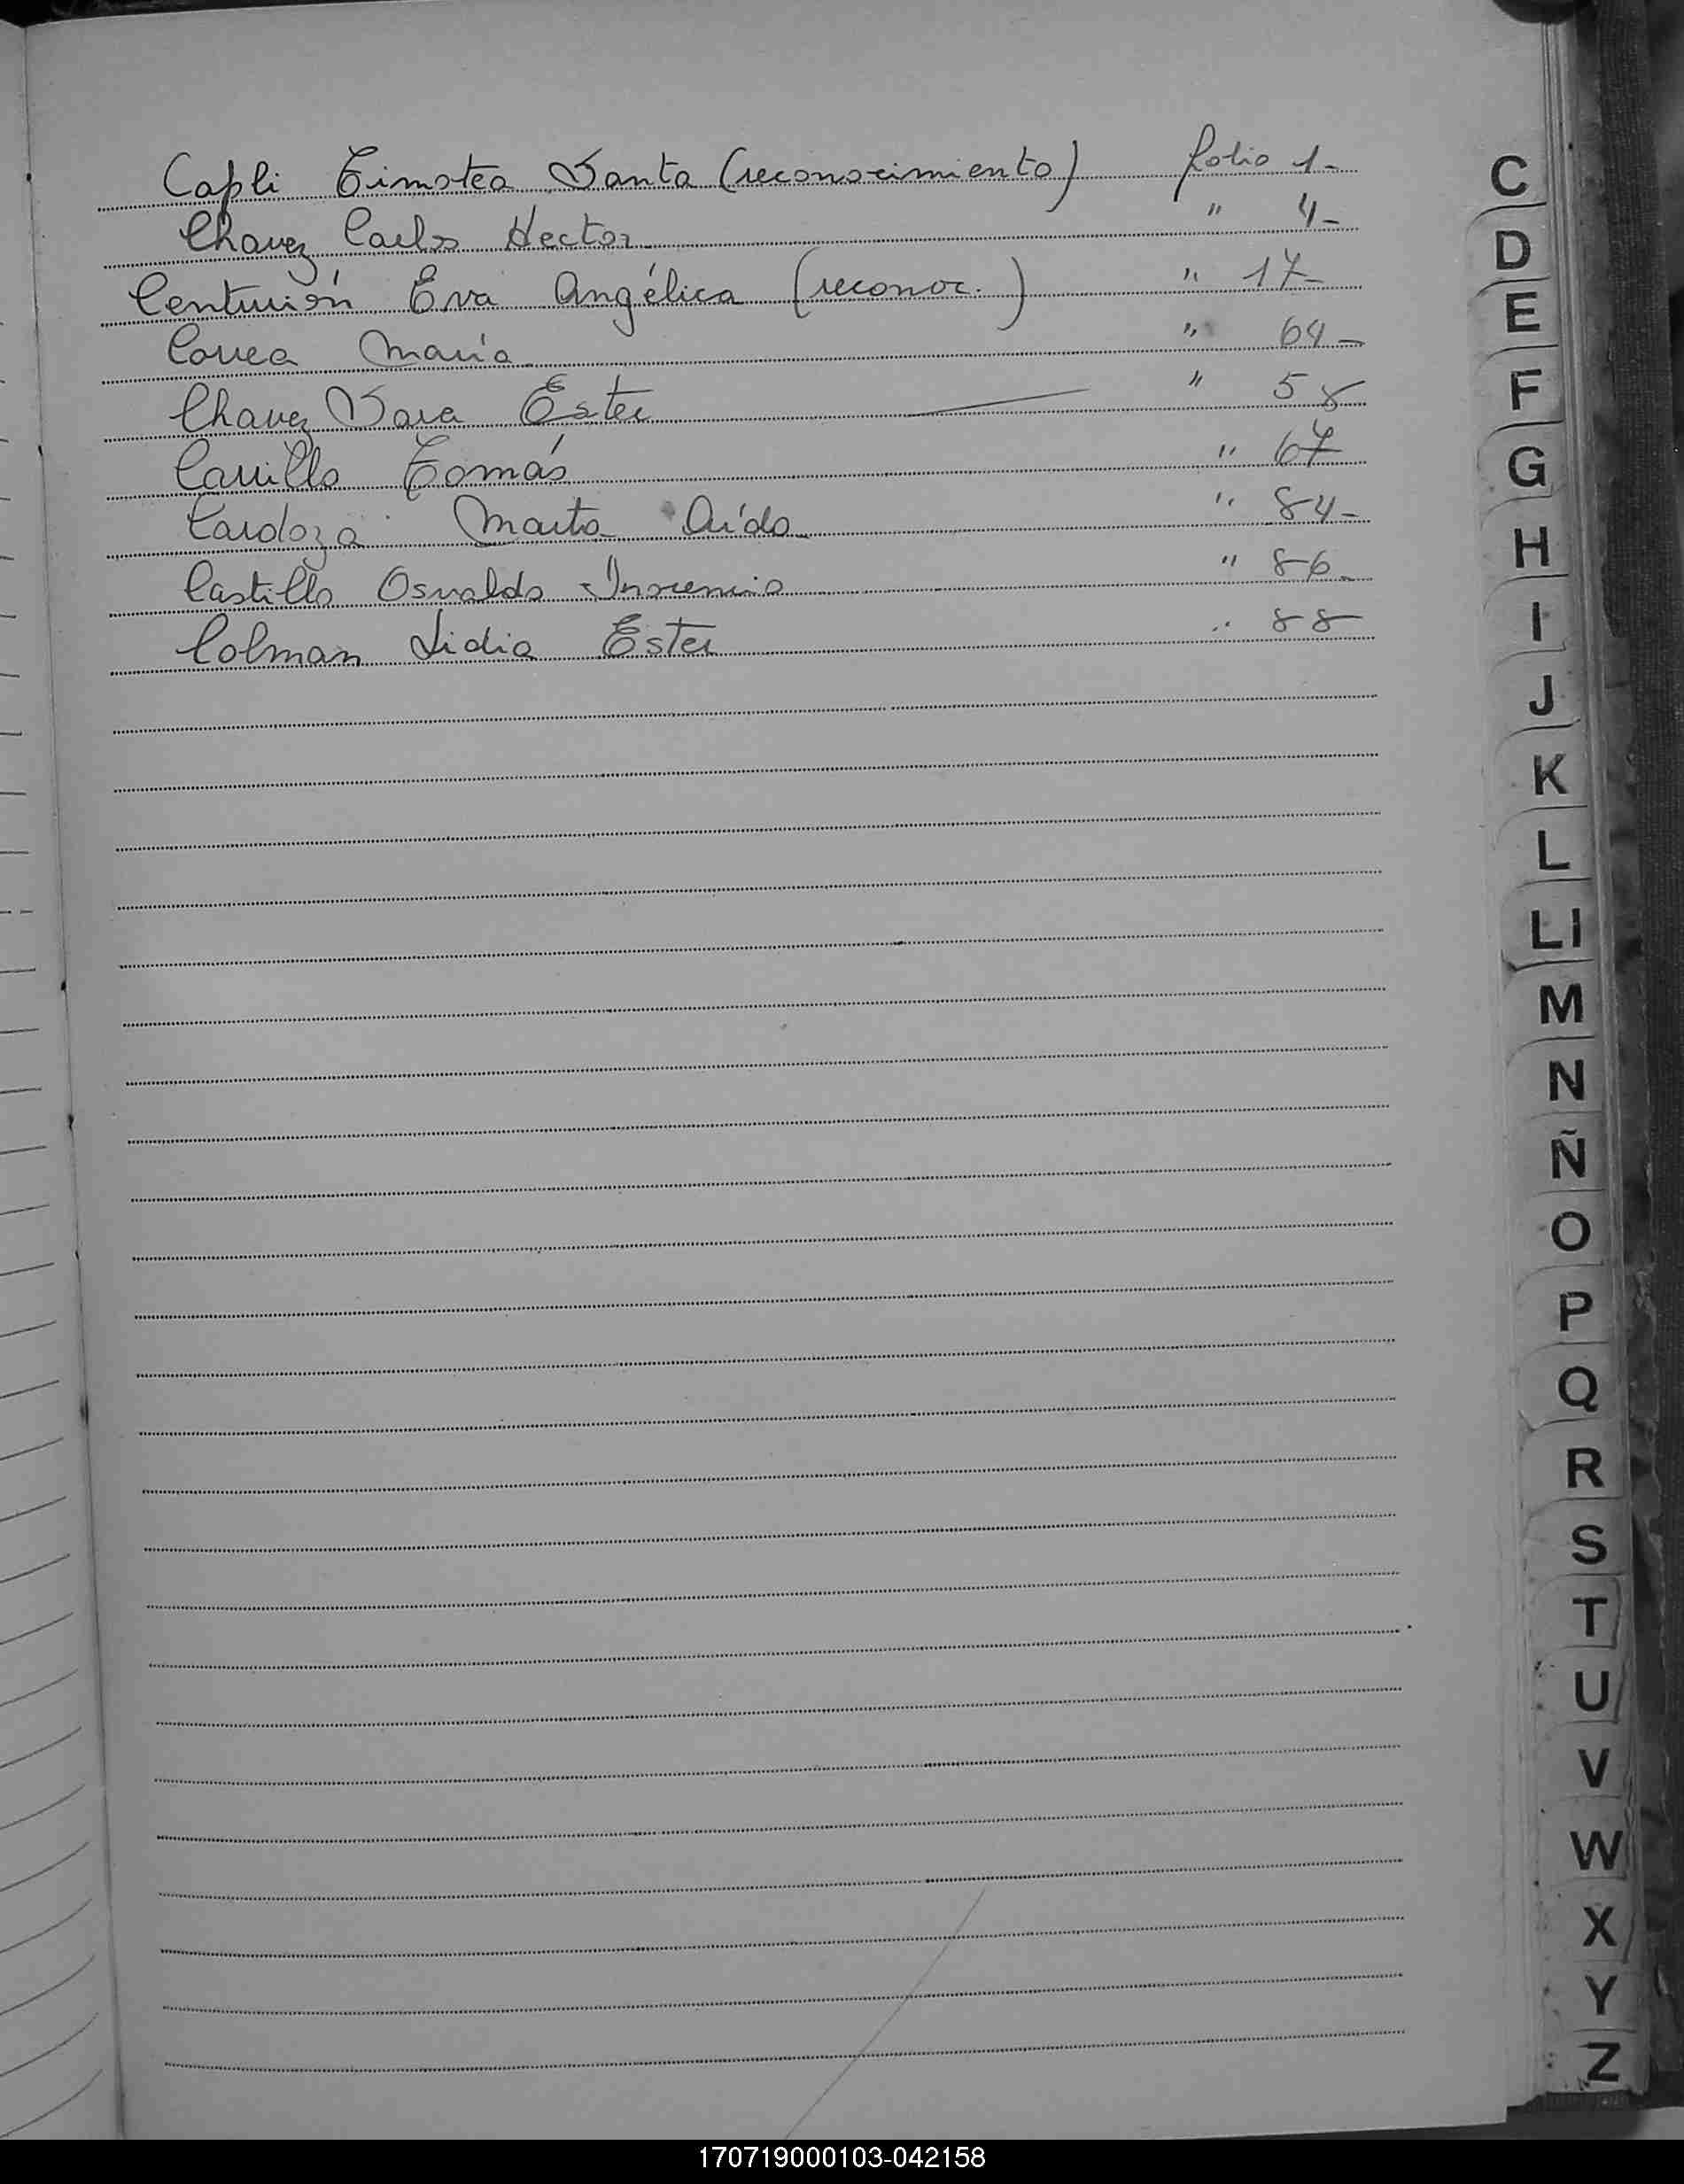 Capli Timotea Santa (reconocimiento) folio 1-
Chavez Carlos Hector " 4-
Centurión Eva Angélica (reconoc.) " 17-
Correa María " 64-
Chavez Sara Ester " 58
Carrillo Tomás " 67
Cardozo Marta Aída " 84-
Castillo Osvaldo Inocencio " 86-
Colman Lidia Ester " 88-
C
D
E
F
G
H
I
J
K
L
Ll
M
N
Ñ
O
P
Q
R
S
T
U
V
W
X
Y
Z
170719000103-042158